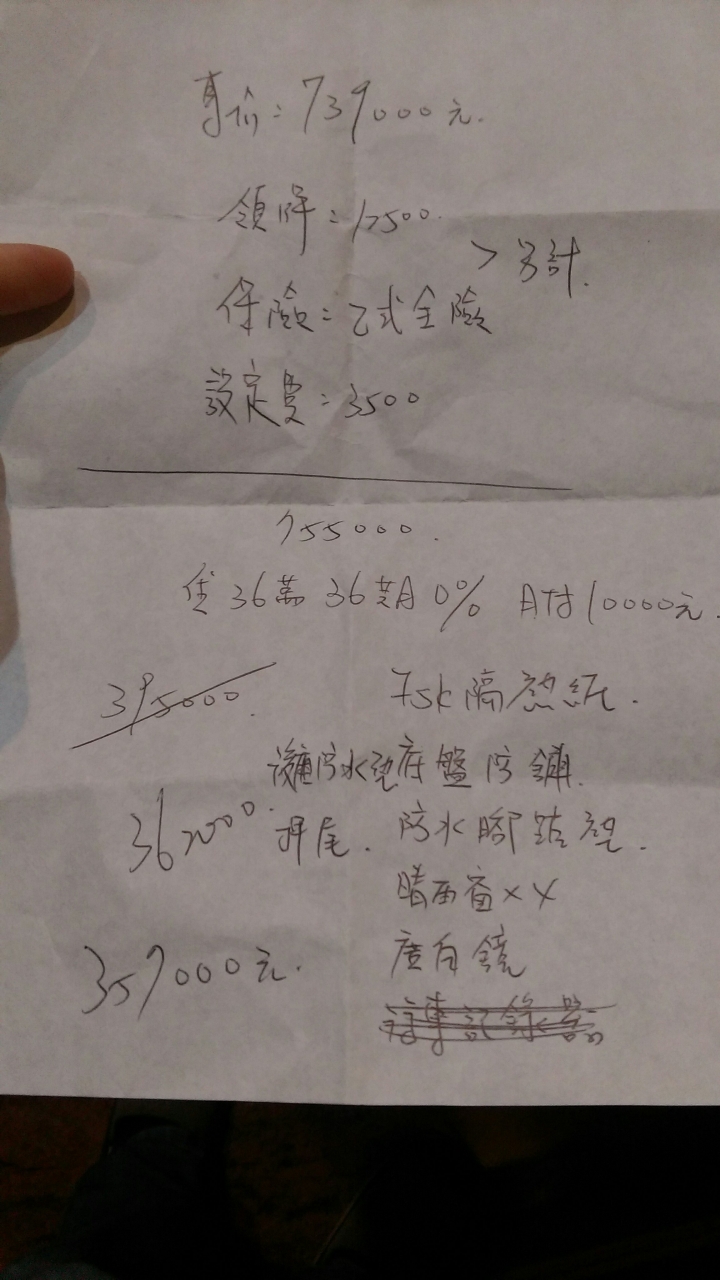 車价:739000元.
領牌:12500.
>另計.
保險:乙式全險
設定費:3500
755000.
貸36萬 36黄月0% 月付10000元.
395000.
75k隔熱紙.
防水墊底盤防鏽.
362000.
押尾.
防水腳踏墊.
晴雨窗×4
廣角鏡
359000元.
行車記錄器